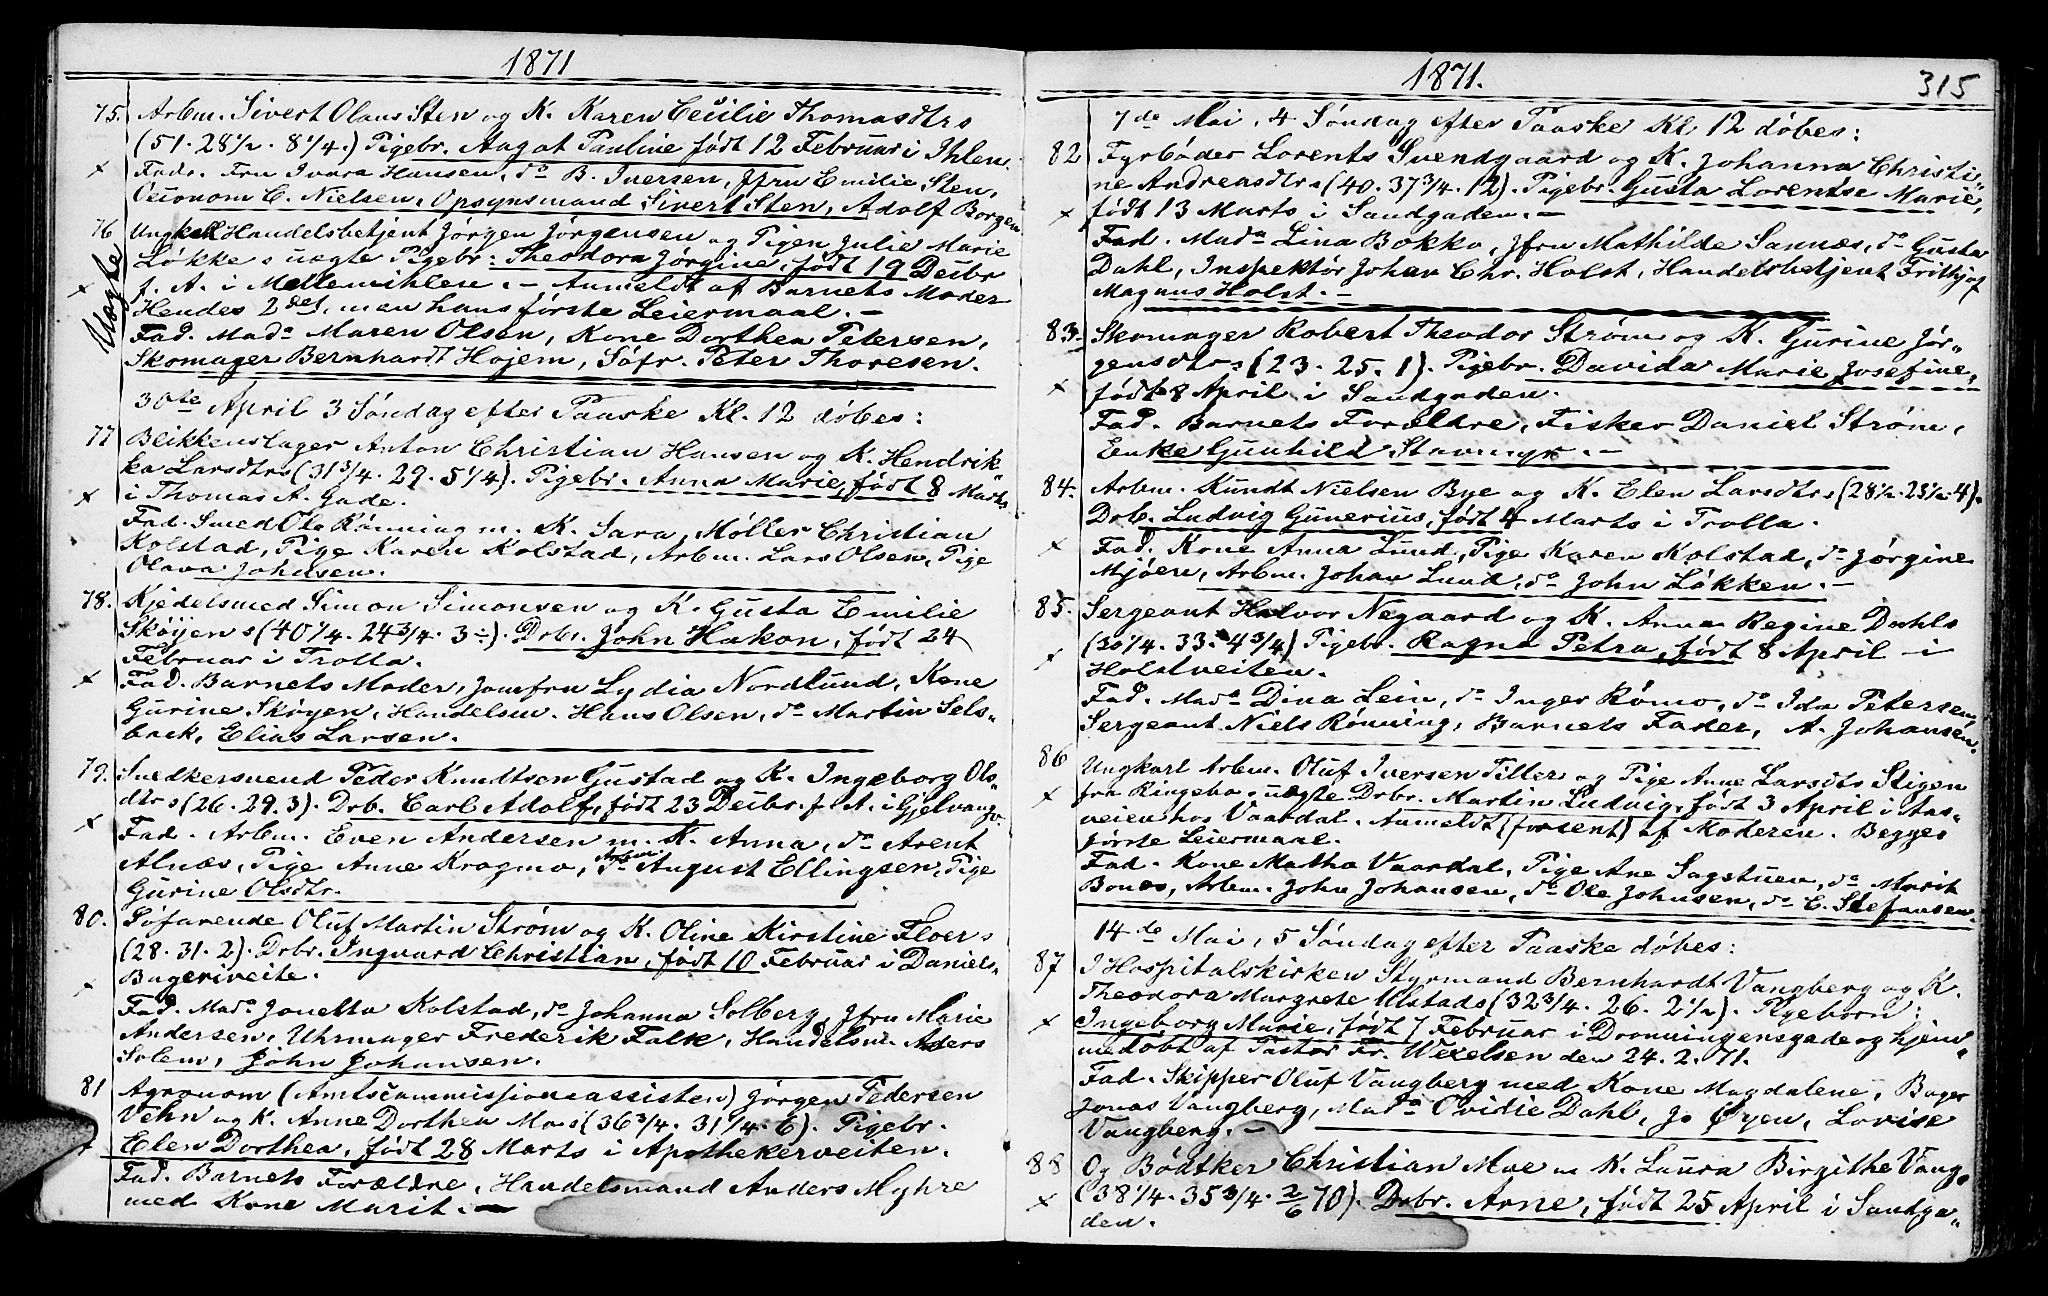 1871
75. Arbm. Sivert Olaus Sten og K. Karen Cecilie Thomasdtrs
(51. 28½. 8¼.) Pigebr. Aagot Pauline født 12 Februar i Ihlen.
Fadr. Fru Ivara Hansen, do B. Iversen, Jfru Emilie Sten,
Oeconom C. Nielsen, Opsynsmand Sivert Sten, Adolf Borgen
76 Ungkarl Handelsbetjent Jørgen Jørgensen og Pigen Julie Marie
Uægte
Løkkes uægte Pigebr. Theodora Jørgine, født 19 Decbr
f. A. i Mellemihlen. – Anmeldt af Barnets Moder
Hendes 2det, men hans første Leiermaal. –
Fad. Mada Maren Olsen, Kone Dorthea Petersen,
Skomager Bernhardt Hojem, Søfr. Peter Thoresen.
30te April 3 Søndag efter Paaske Kl. 12 døbes:
77 Blikkenslager Anton Christian Hansen og K. Hendrik"
ka Larsdtrs (31¾. 29. 5¼). Pigebr. Anna Marie, født 8 Marts
i Thomas A. Gade.
Fad. Smed Ole Rønning m. K. Sara, Møller Christian
Kolstad, Pige Karen Kolstad, Arbm. Lars Olsen, Pige
Olava Johnsen.
78. Kjedelsmed Simon Simonsen og K. Gusta Emilie
Skøyens (40¼. 24¾. 3 ). Drbr. John Hakon, født 24
Februar i Trolla.
Fad. Barnets Moder, Jomfru Lydia Nordlund, Kone
Gurine Skøyen, Handelsm. Hans Olsen, do Martin Sels"
back, Elias Larsen.
79. Snedkersvend Peder Knudtsen Gustad og K. Ingeborg Ols"
dtrs (26. 29. 3). Drb. Carl Adolf, født 23 Decbr. f. A. i Gjelvangv.
Fad. Arbm. Even Andersen m. K. Anna, do Arent
Alnæs, Pige Anne Kragmo, Arbm. August Ellingsen, Pige
Gurine Olsdtr.
80. Søfarende Oluf Martin Strøm og K. Oline Kirstine Floers
(28. 31. 2). Drbr. Ingvard Christian, født 10 Februar i Daniels"
Bagerveite.
Fad. Mada Jonetta Kolstad, do Johanna Solberg, Jfru Marie
Andersen, Uhrmager Frederik Falk, Handelsm. Anders
Solem, John Johansen.
81 Agronom (Amtscommissionsassistent) Jørgen Pedersen
Vehn og K. Anne Dorthea Moes (36¾. 31¼. 6). Pigebr.
Elen Dorthea, født 28 Marts i Apothekerveiten.
Fad. Barnets Forældre, Handelsmand Anders Myhre
med Kone Marit. –
1871.
315
7de Mai, 4 Søndag efter Paaske Kl. 12 døbes:
82 Fyrbøder Lorents Svendgaard og K. Johanna Christi"
ne Andreasdtrs (40. 37¾. 12). Pigebr. Gusta Lorentse Marie,
født 13 Marts i Sandgaden. –
Fad. Mada Lina Bokko, Jfru Mathilde Sannæs, do Gusta
Dahl, Inspektør Johan Chr. Holst, Handelsbetjent Frithjof
Magnus Holst. –
83. Skomager Robert Theodor Strøm og K. Gurine Jør"
gensdtrs (23. 25. 1). Pigebr. Davida Marie Josefine,
født 8 April i Sandgaden.
Fad. Barnets Forældre, Fisker Daniel Strøm,
Enke Gunhild Stavmyr. –
84. Arbm. Kundt Nielsen Bye og K. Elen Larsdtrs (28½. 25½. 4).
Drb. Ludvig Gunerius, født 4 Marts i Trolla.
Fad. Kone Anna Lund, Pige Karen Kolstad, do Jørgine
Mjøen, Arbm. Johan Lund, do John Løkken. –
85. Sergeant Halvor Negaard og K. Anna Regine Dahls
(30¼. 33. 4¾) Pigebr. Ragna Petra, født 8 April i
Holstveiten.
Fad. Mada Dina Lein, do Inger Rømo, do Ida Petersen,
Sergeant Niels Rønning, Barnets Fader, A. Johansen.
86 Ungkarl Arbm. Oluf Iversen Tiller og Pige Anne Larsdtr Stigen
fra Ringebo, uægte Drbr. Martin Ludvig, født 3 April i Aas"
veien hos Vaardal. Anmeldt (forsent) af Moderen. Begges
første Leiermaal.
Fad. Kone Martha Vaardal, Pige Ane Sagstuen, do Marit
Bonæs, Arbm. John Johansen, do Ole Johnsen, do E. Stefansen.
14de Mai, 5 Søndag efter Paaske døbes:
87 I Hospitalskirken Styrmand Bernhardt Vangberg og K.
Theodora Margrete Ulstads (32¾. 26. 2½). Pigebørn:
Ingeborg Marie, født 7 Februar i Dronningensgade og hjem"
medøbt af Pastor Fr. Wexelsen den 24. 2. 71.
Fad. Skipper Oluf Vangberg med Kone Magdalene, Bager
Jonas Vangberg, Mada Ovidie Dahl, Jo Øyen, Lovise
Vangberg. –
88 Og Bødtker Christian Moe og K. Laura Birgithe Vang"
(38¼. 35¾. 2/6 70). Drbr. Arne, født 25 April i Sandga"
den.